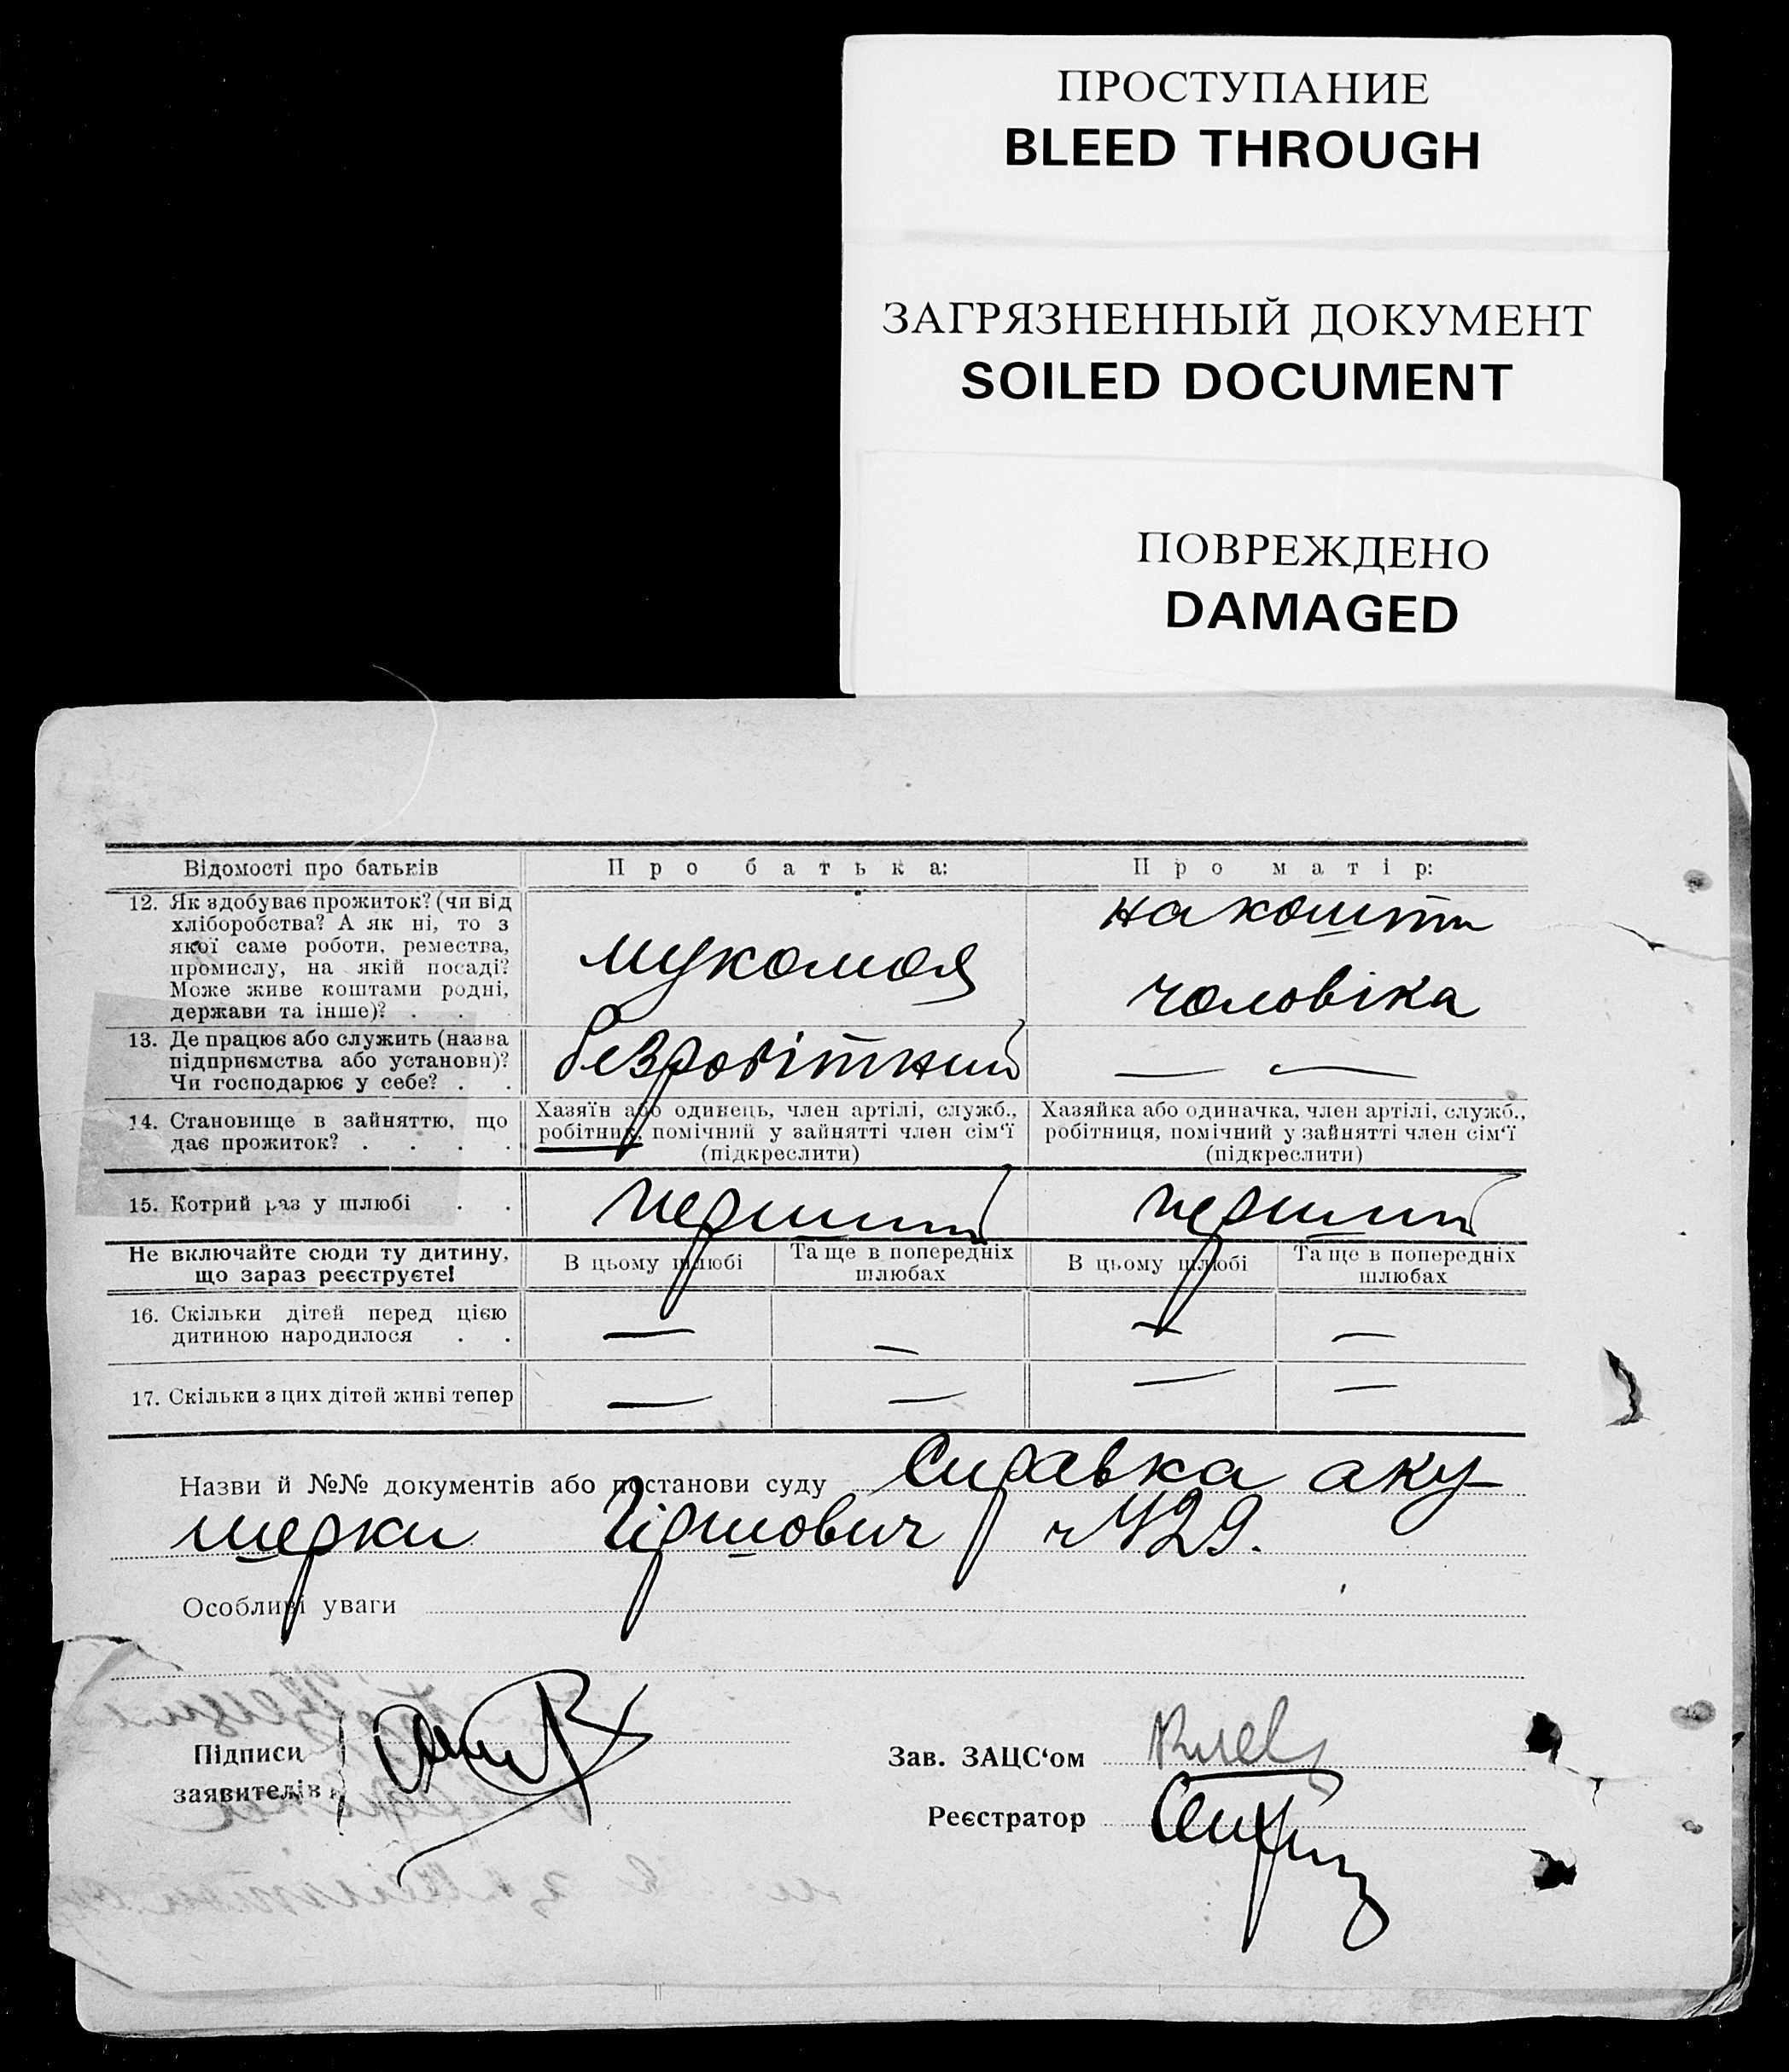 ПРОСТУПАНИЕ
BLEED THROUGH
ЗАГРЯЗНЕННЫЙ ДОКУМЕНТ
SOILED DOCUMENT
ПОВРЕЖДЕНО
DAMAGED
Відомості про батьків Про батька: Про матір:
12. Як здобуває прожиток? (чи від
хліборобства? А як ні, то з
якої саме роботи, ремества,
промислу, на якій посаді?
Може живе коштами родні,
держави та інше)? . .
мукомол
на кошти
чоловіка
13. Де працює або служить (назва
підприємства або установи)?
Чи господарює у себе? . .
безробітний
— —
14. Становище в зайняттю, що
дає прожиток? . . . .
Хазяїн або одинець, член артілі, служб.,
робітник, помічний у зайнятті член сім'ї
(підкреслити)
Хазяйка або одиначка, член артілі, служб.,
робітниця, помічний у зайнятті член сім'ї
(підкреслити)
15. Котрий раз у шлюбі . . перший перший
Не включайте сюди ту дитину,
що зараз реєструєте!
В цьому шлюбі
Та ще в попередніх
шлюбах
В цьому шлюбі
Та ще в попередніх
шлюбах
16. Скільки дітей перед цією
дитиною народилося . .
— — — —
17. Скільки з цих дітей живі тепер — — — —
Назви й №№ документів або постанови суду Справка аку
шерки Гіршович
Особливі уваги
Підписи
заявителів
Зав. ЗАЦС'ом
Реєстратор